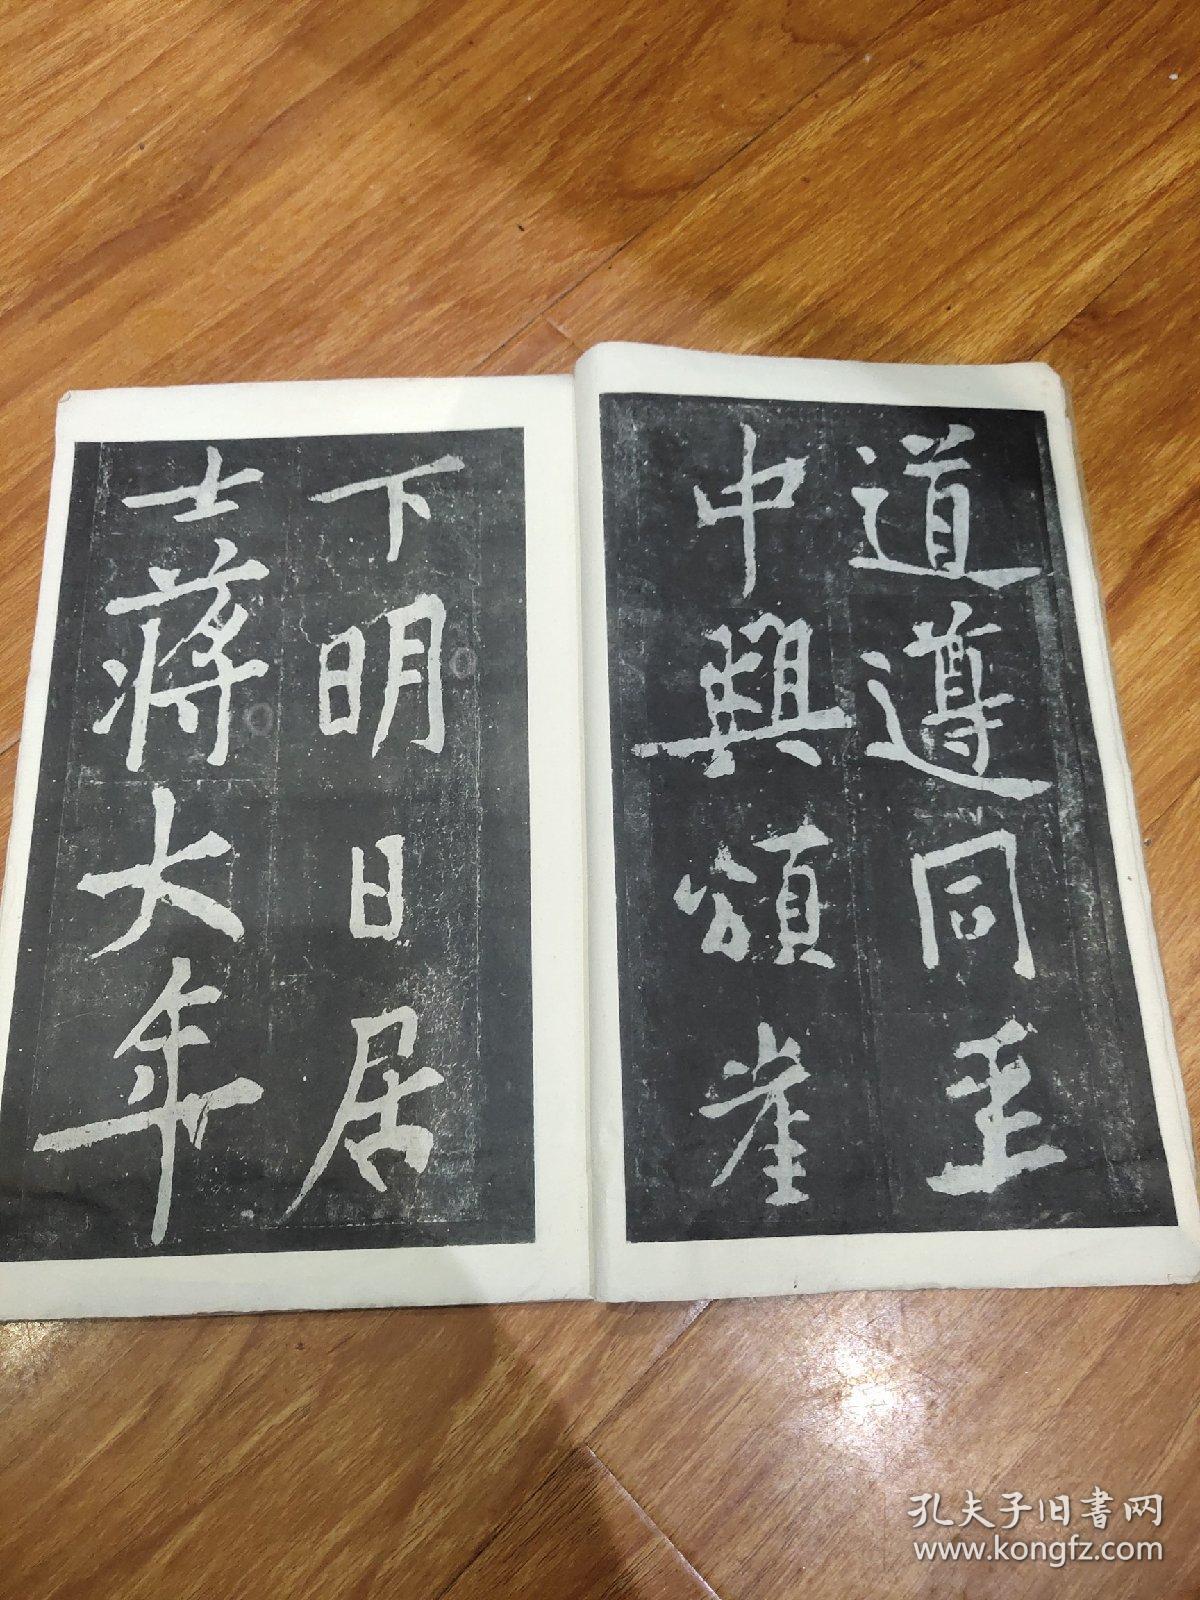 道遵同至
中興頌崖
下明日居
士蔣大年
孔夫子旧書网
www.kongfz.com